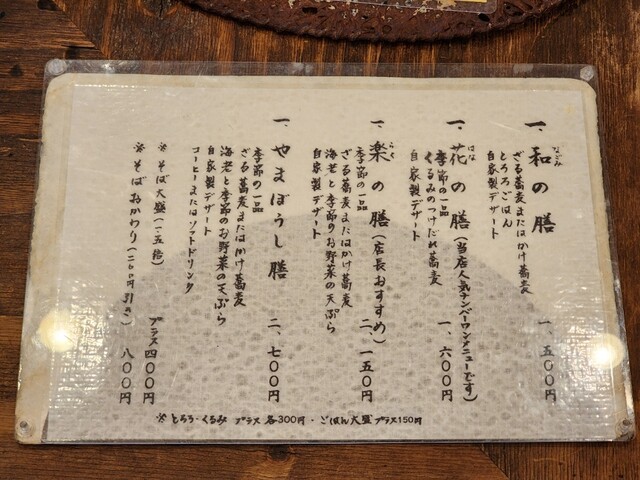 一、和の膳 一、五〇〇円
なごみ
ざる蕎麦またはかけ蕎麦
とろろごはん
自家製デザート
一、花の膳(当店人気ナンバーワンメニューです) 一、六〇〇円
はな
季節の一品
くるみのつけだれ蕎麦
自家製デザート
一、楽の膳(店長おすすめ) 二、一五〇円
らく
季節の一品
ざる蕎麦またはかけ蕎麦
海老と季節のお野菜の天ぷら
自家製デザート
一、やまぼうし膳 二、七〇〇円
季節の一品
ざる蕎麦またはかけ蕎麦
海老と季節のお野菜の天ぷら
自家製デザート
コーヒーまたはソフトドリンク
※そば大盛(一.五倍) プラス四〇〇円
※そばおかわり(二〇〇円引き) 八〇〇円
※とろろ・くるみ プラス各300円・ごはん大盛プラス150円